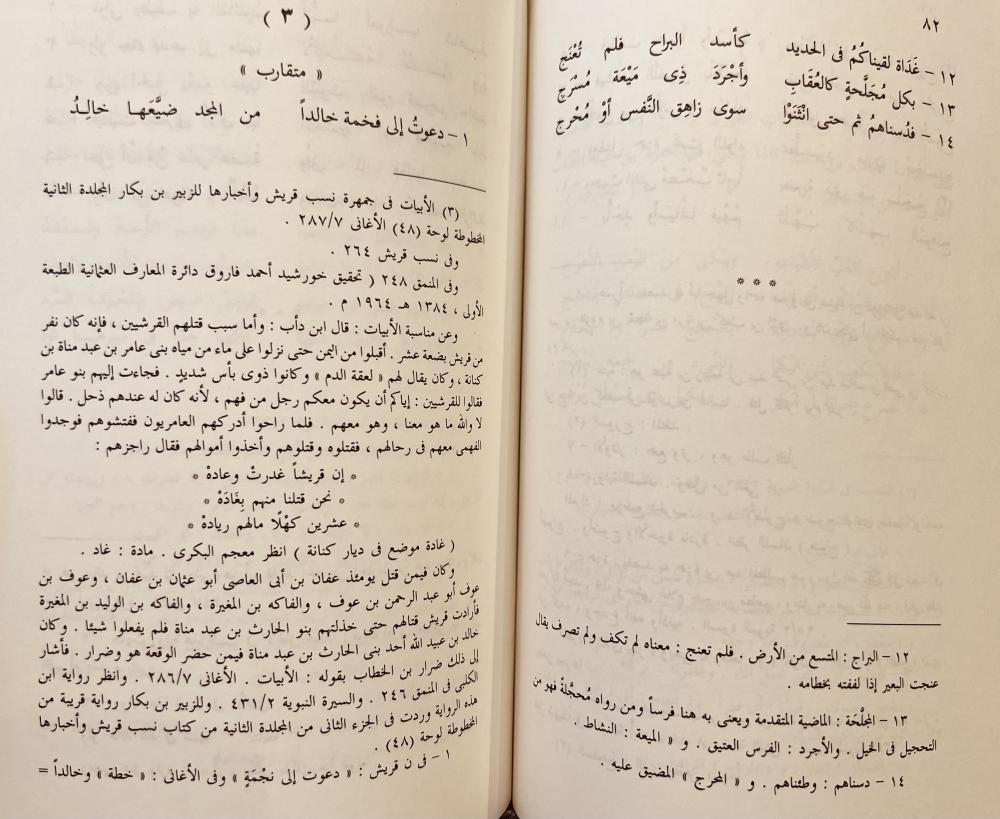 ٨٢
١٢ – غَدَاة لقيناكُمُ فى الحديد كأسد البراح فلم تُعْنَج
١٣ – بكل مُجَلَّحةٍ كالعُقَابِ وأجْرَدَ ذِى مَيْعَة مُسْرَجِ
١٤ – فدُسناهمُ ثم حتى انْثَنَوْا سوى زاهِقِ النَّفس أوْ مُحْرج
* * *
١٢ – البراج : المتسع من الأرض . فلم تعنج : معناه لم تكف ولم تصرف يقال
عنجت البعير إذا لففته بخطامه .
١٣ – المجلَّحَة : الماضية المتقدمة ويعنى به هنا فرساً ومن رواه مُحجَّلةٌ فهو من
التحجيل فى الخيل . والأجرد : الفرس العتيق . و « الميعة : النشاط .
١٤ – دسناهم : وطئناهم . و « المحرج » المضيق عليه .
( ٣ )
« متقارب »
١ – دعوتُ إلى فخمة خالداً من المجد ضيَّعَهـا خالِـدُ
(٣) الأبيات فى جمهرة نسب قريش وأخبارها للزبير بن بكار المجلدة الثانية
المخطوطة لوحة (٤٨) الأغانى ٢٨٧/٧ .
وفى نسب قريش ٢٦٤ .
وفى المنمق ٢٤٨ ( تحقيق خورشيد أحمد فاروق دائرة المعارف العثمانية الطبعة
الأولى ، ١٣٨٤ هـ ١٩٦٤ م .
وعن مناسبة الأبيات : قال ابن دأب : وأما سبب قتلهم القرشيين ، فإنه كان نفر
من قريش بضعة عشر . أقبلوا من اليمن حتى نزلوا على ماء من مياه بنى عامر بن عبد مناة بن
كنانة ، وكان يقال لهم « لعقة الدم » وكانوا ذوى بأس شديدٍ . فجاءت إليهم بنو عامر
فقالوا للقرشيين : إياكم أن يكون معكم رجل من فهم ، لأنه كان له عندهم ذحل . قالوا
لا والله ما هو معنا ، وهو معهم . فلما راحوا أدركهم العامريون ففتشوهم فوجدوا
الفهمى معهم فى رحالهم ، فقتلوه وقتلوهم وأخذوا أموالهم فقال راجزهم :
* إن قريشاً غدرتْ وعادهْ *
* نحن قتلنا منهم بِغَادَهْ *
* عشرين كهْلًا مالهم ريادهْ *
( غادة موضع فى ديار كنانة ) انظر معجم البكرى . مادة : غاد .
وكان فيمن قتل يومئذ عفان بن أبى العاصى أبو عثمان بن عفان ، وعوف بن
عوف أبو عبد الرحمن بن عوف ، والفاكه بن المغيرة ، والفاكه بن الوليد بن المغيرة
فأرادت قريش قتالهم حتى خذلتهم بنو الحارث بن عبد مناة فلم يفعلوا شيئا . وكان
خالد بن عبيد الله أحد بنى الحارث بن عبد مناة فيمن حضر الوقعة هو وضرار . فأشار
إلى ذلك ضرار بن الخطاب بقوله : الأبيات . الأغانى ٢٨٦/٧ . وانظر رواية ابن
الكلبى فى المنمق ٢٤٦ . والسيرة النبوية ٤٣١/٢ . وللزبير بن بكار رواية قريبة من
هذه الرواية وردت فى الجزء الثانى من المجلدة الثانية من كتاب نسب قريش وأخبارها
المخطوطة لوحة (٤٨) .
١ – فى ن قريش : « دعوت إلى نجُمَةٍ » وفى الأغانى : « خطة » وخالداً =